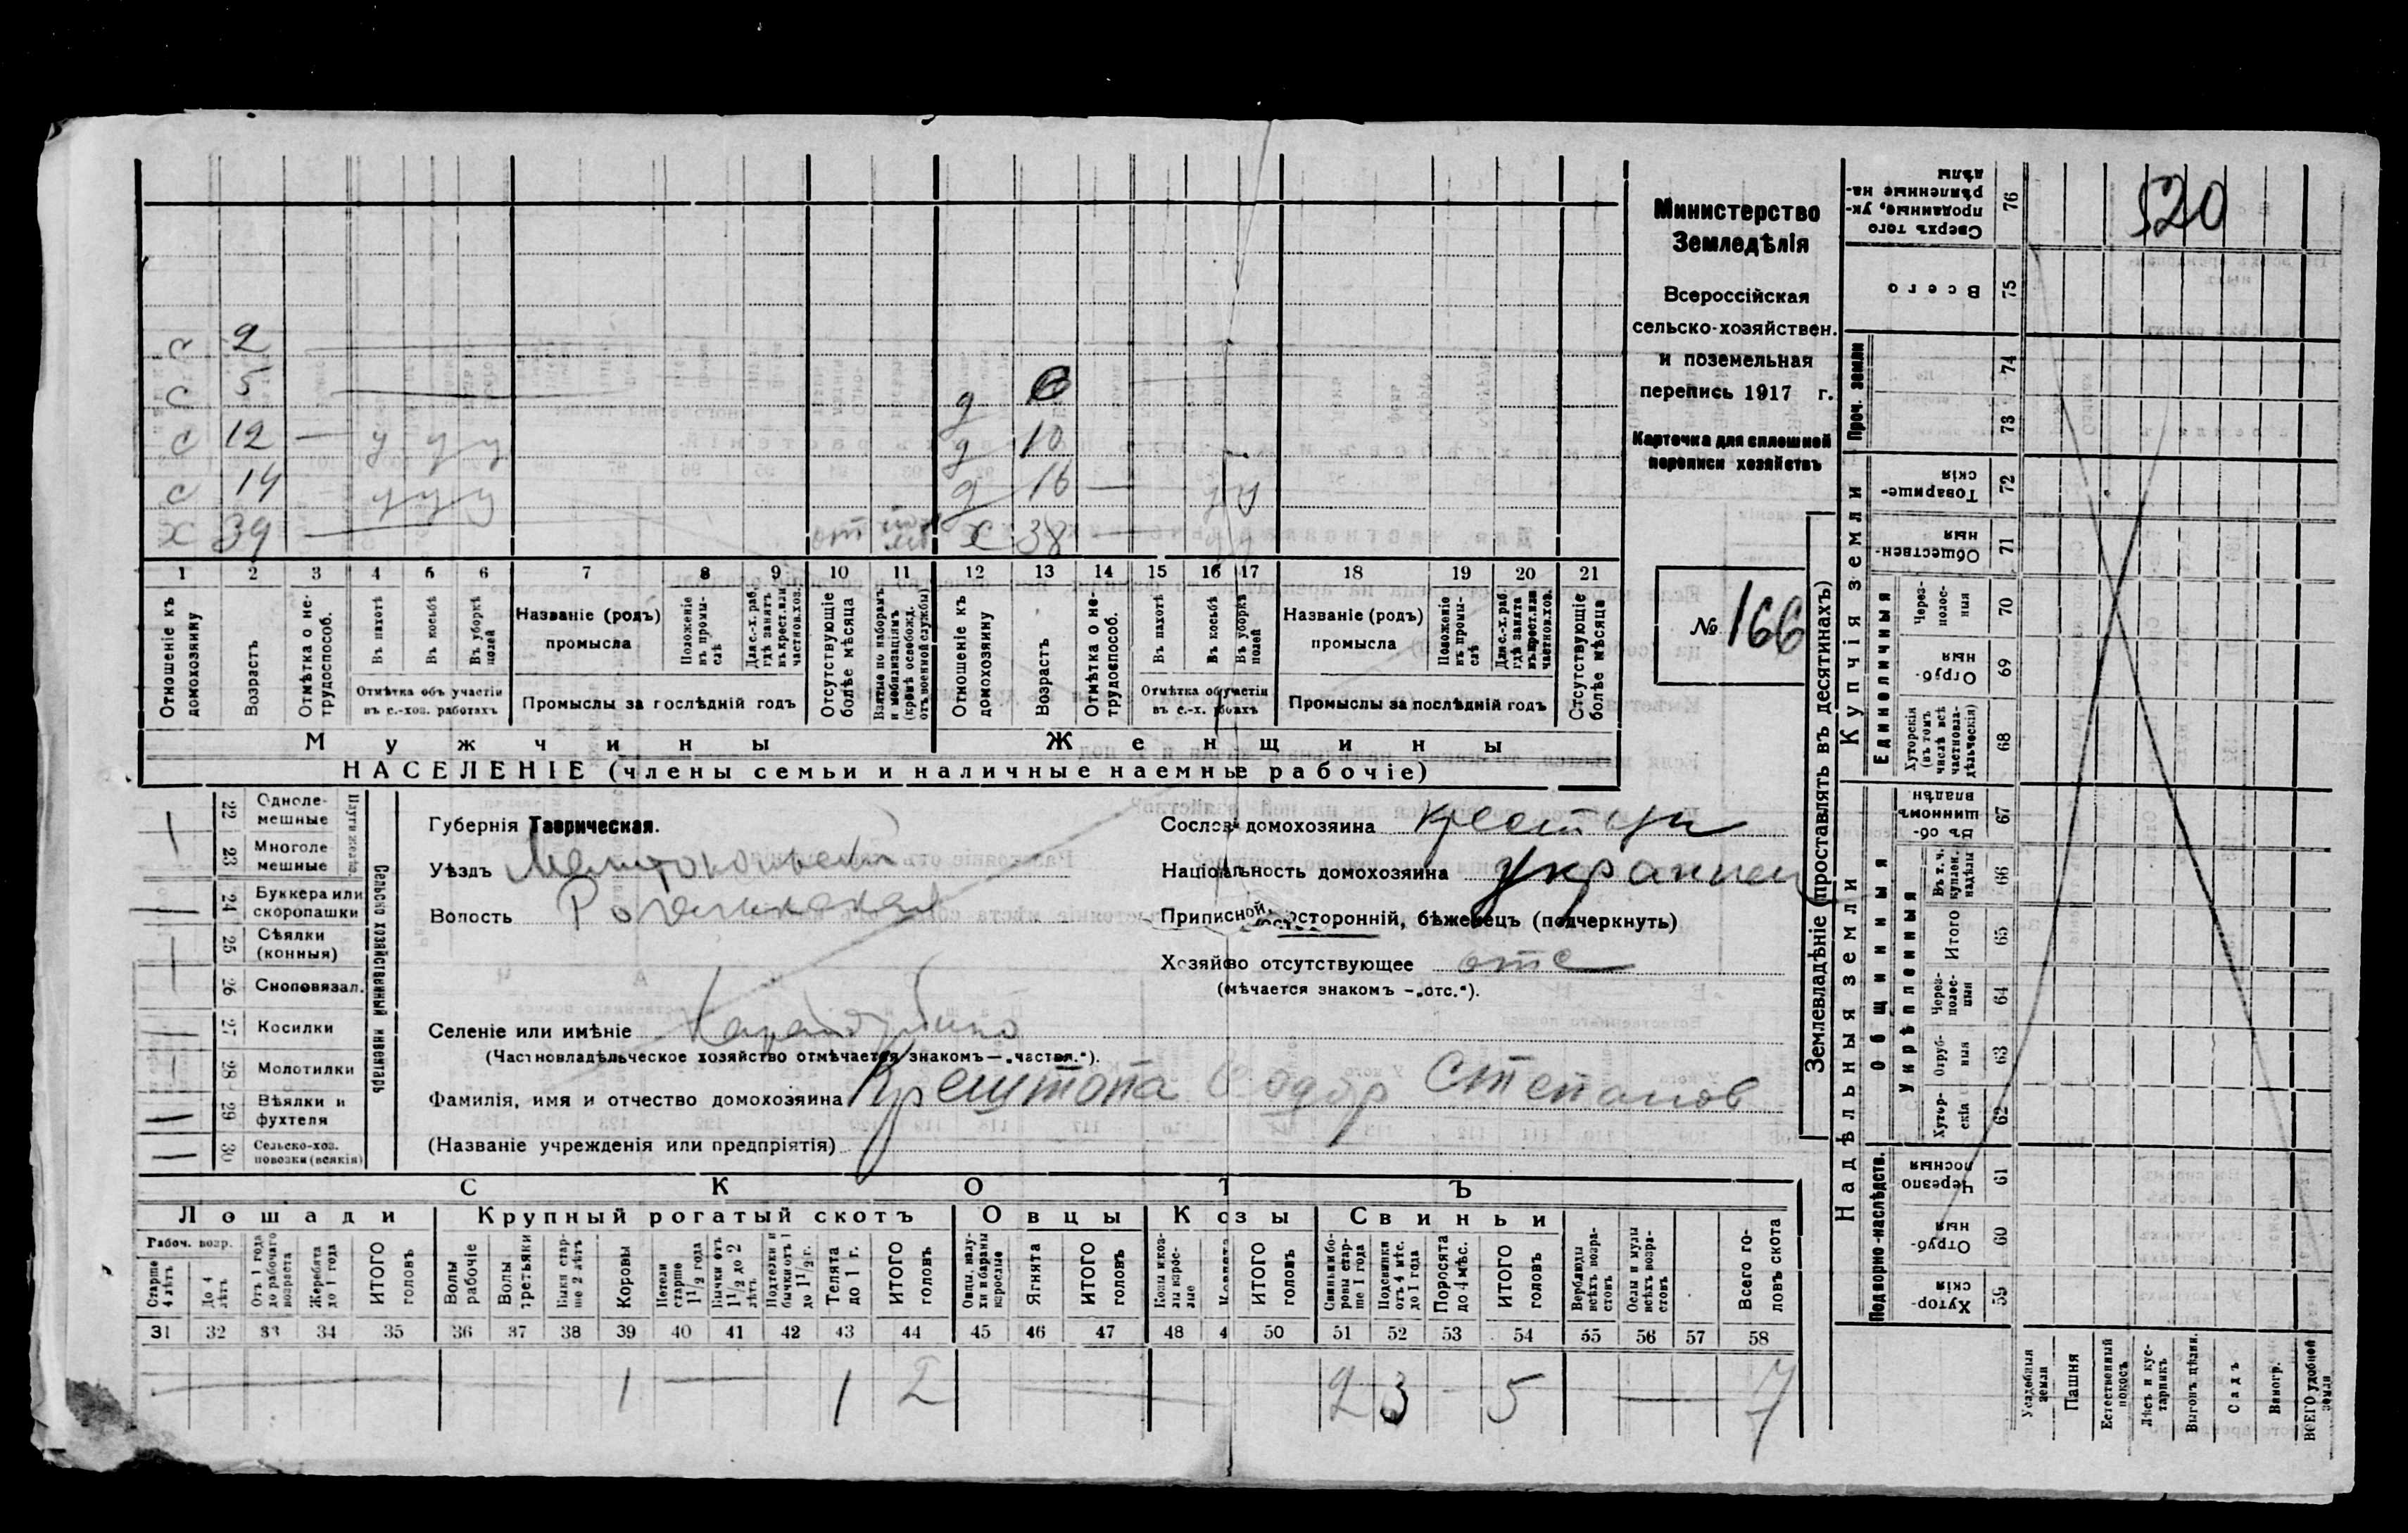 520
Министерство
Земледѣлія
Всероссійская
сельско-хозяйствен.
и поземельная
перепись 1917 г.
Карточка для сплошной
переписи хозяйствъ
№ 166
с 2
с 5 д
с 12 — у у у д 10
с 14 — у у у д 16 —
х 39 — отс х 38 —
1 2 3 4 5 6 7 8 9 10 11 12 13 14 15 16 17 18 19 20 21
Отношеніе къ домохозяину
Возрастъ
Отмѣтка о не-трудоспособ.
Въ пахотѣ
Въ косьбѣ
Въ уборкѣ полей
Отмѣтка объ участіи
въ с.-хоз. работахъ
Названіе (родъ)
промысла
Положеніе въ промы-слѣ
Для с.-х. раб. гдѣ занятъ въ крест. или частнов. хоз.
Промыслы за послѣдній годъ
Отсутствующіе болѣе мѣсяца
Взятые по наборамъ и мобилизаціямъ (кромѣ освобожд. отъ военной службы)
Отношеніе къ домохозяину
Возрастъ
Отмѣтка о не-трудоспособ.
Въ пахотѣ
Въ косьбѣ
Въ уборкѣ полей
Отмѣтка об участіи
въ с.-х. работахъ
Названіе (родъ)
промысла
Положеніе въ промы-слѣ
Для с.-х. раб. гдѣ занята въ крест. или частнов. хоз.
Промыслы за послѣдній годъ
Отсутствующіе болѣе мѣсяца
Мужчины Женщины
НАСЕЛЕНІЕ (члены семьи и наличные наемные рабочіе)
Сельско хозяйственный инвентарь
22 Одноле-мешные
23 Многоле мешные
24 Буккера или скоропашки
25 Сѣялки (конныя)
26 Сноповязал.
27 Косилки
28 Молотилки
29 Вѣялки и фухтеля
30 Сельско-хоз. повозки (всякія)
Губернія Таврическая.
Уѣздъ Мелитопольскій
Волость
Селеніе или имѣніе
(Частновладѣльческое хозяйство отмѣчается знакомъ—„частвл.“).
Фамилія, имя и отчество домохозяина Крештопа Федор Степанов
(Названіе учрежденія или предпріятія)
Сословіе домохозяина
Національность домохозяина украинец
Приписной, посторонній, бѣженецъ (подчеркнуть)
Хозяйство отсутствующее отс
(мѣчается знакомъ —„отс.“).
СКОТЪ
Лошади Крупный рогатый скотъ Овцы Козы Свиньи
Рабоч. возр.
Старше 4 лѣтъ
До 4 лѣтъ
Отъ 1 года до рабочаго возраста
Жеребята до 1 года
ИТОГО головъ
Волы рабочіе
Волы третьяки
Быки стар-ше 2 лѣтъ
Коровы
Нетели старше 1 1/2 года
Бычки отъ 1 1/2 до 2 лѣтъ
Подтелки и бычки отъ 1 до 1 1/2 г.
Телята до 1 г.
ИТОГО головъ
Овцы, валу-хи и бараны взрослые
Ягнята
ИТОГО головъ
Козы и коз-лы взрос-лые
Козлята
ИТОГО головъ
Свиньи и бо-ровы стар-ше 1 года
Подсвинки отъ 4 мѣс. до 1 года
Поросята до 4 мѣс.
ИТОГО головъ
Верблюды всѣхъ возра-стовъ
Ослы и мулы всѣхъ возра-стовъ
Всего го-ловъ скота
31 32 33 34 35 36 37 38 39 40 41 42 43 44 45 46 47 48 4 50 51 52 53 54 55 56 57 58
— 1 — 1 2 — 2 3 — 5 — 7
Землевладѣніе (проставлять въ десятинахъ)
Надѣльныя земли
Купчія земли
Проч. земли
Подворно-наслѣдств.
Общинныя
Укрѣпленныя
Единоличныя
Сверхъ того проданные, ук-рѣпленные на-дѣлы 76
Всего 75
74
73
Товарище-скія 72
Обществен-ныя 71
Через-полос-ныя 70
Отруб-ныя 69
Хуторскія (въ томъ числѣ всѣ частновла-дѣльческія) 68
Въ об-щинномъ владѣн. 67
Въ т. ч. куплен. надѣлы 66
Итого 65
Через-полос-ныя 64
Отруб-ныя 63
Хутор-скія 62
Черезпо лосныя 61
Отруб-ныя 60
Хутор-скія 59
Усадебныя земли
Пашня
Естественный покосъ
Лѣсъ и кус-тарникъ
Выгонъ цѣлин.
Садъ
Виногр.
ВСЕГО удобной земли